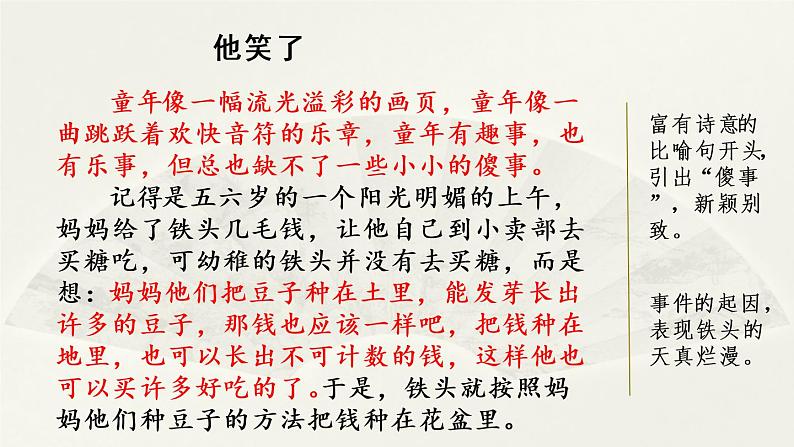 他笑了
童年像一幅流光溢彩的画页，童年像一
曲跳跃着欢快音符的乐章，童年有趣事，也
有乐事，但总也缺不了一些小小的傻事。
记得是五六岁的一个阳光明媚的上午，
妈妈给了铁头几毛钱，让他自己到小卖部去
买糖吃，可幼稚的铁头并没有去买糖，而是
想：妈妈他们把豆子种在土里，能发芽长出
许多的豆子，那钱也应该一样吧，把钱种在
地里，也可以长出不可计数的钱，这样他也
可以买许多好吃的了。于是，铁头就按照妈
妈他们种豆子的方法把钱种在花盆里。
富有诗意的
比喻句开头，
引出“傻事
”，新颖别
致。
事件的起因，
表现铁头的
天真烂漫。